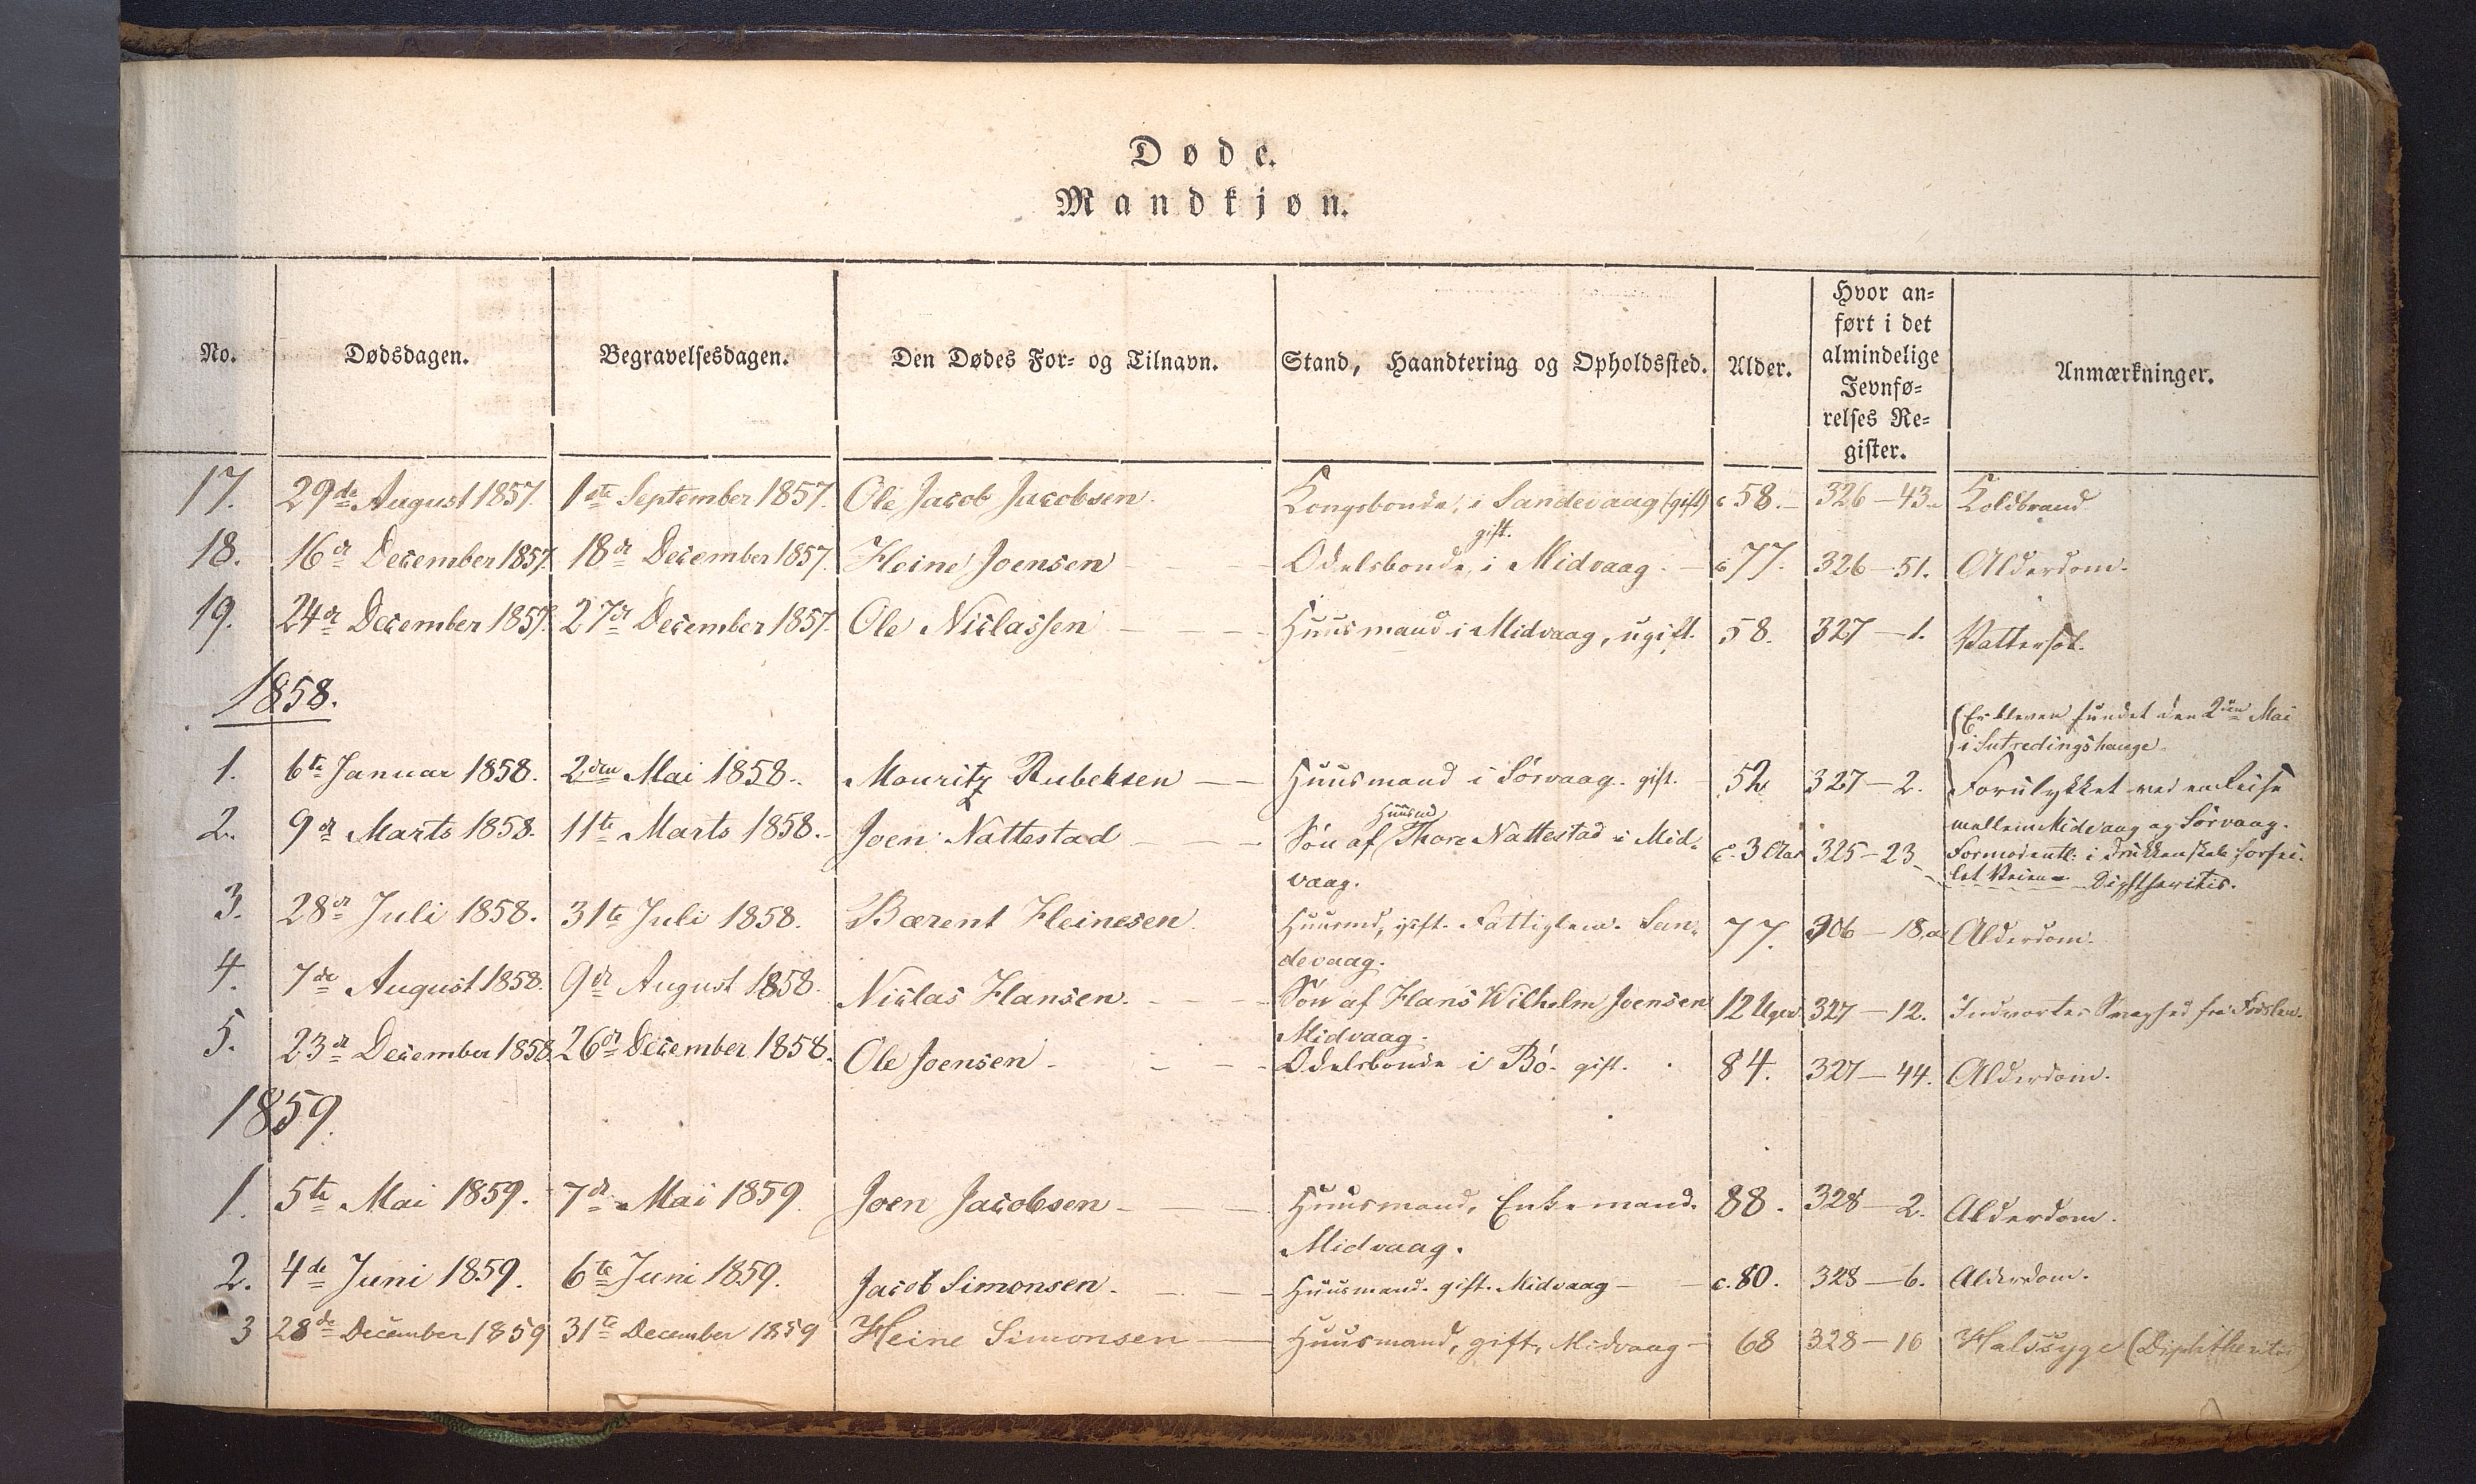 Døde.
Mandkjøn.
No. Dødsdagen. Begravelsesdagen. Den Dødes For- og Tilnavn. Stand, Haandtering og Opholdssted. Alder. Hvor an=
ført i det
almindelige
Jevnfø=
relses Re=
gister. Anmærkninger.
17. 29de August 1857. 1ste September 1857. Ole Jacob Jacobsen. Kongsbonde, i Sandevaag (gift) c 58. 326 — 43. Koldbrand
18. 16de December 1857. 18de December 1857. Heine Joensen Odelsbonde, gift. i Midvaag. c 77. 326 — 51. Alderdom.
19. 24de December 1857. 27de December 1857. Ole Niclassen Huusmand i Midvaag, ugift. 58. 327 — 1. Vattersot.
1858.
(Er bleven fundet den 2den Mai
i
1. 6te Januar 1858. 2den Mai 1858. Mouritz Rubeksen Huusmand i Sørvaag. gift. 52 327 — 2. Forulykket ved en Reise
mellem Midvaag og Sørvaag.
2. 9de Marts 1858. 11te Marts 1858. Joen Nattestad Søn af Huusmd Thore Nattestad i Mid-
vaag. c. 3 Aar 325 — 23 Formodentl. i Drukkenskab forfei-
let Veien. Diphtheritis.
3. 28de Juli 1858. 31te Juli 1858. Bærent Heinesen. Huusmd, gift. Fattiglem. San-
devaag. 77. 306 — 18,a Alderdom.
4. 7de August 1858. 9de August 1858. Niclas Hansen. Søn af Hans Wilhelm Joensen
Midvaag. 12 Uger 327 — 12. Indvortes Svaghed fra Fødslen.
5. 23de December 1858 26de December 1858. Ole Joensen Odelsbonde i Bø. gift. 84. 327 — 44. Alderdom.
1859.
1. 5te Mai 1859. 7de Mai 1859. Joen Jacobsen Huusmand, Enkemand.
Midvaag. 88. 328 — 2. Alderdom.
2. 4de Juni 1859. 6te Juni 1859. Jacob Simonsen. Huusmand. gift. Midvaag c. 80. 328 — 6. Alderdom.
3 28de December 1859 31te December 1859 Heine Simonsen Huusmand, gift, Midvaag 68 328 — 16 Halssyge (Diphtheritis)